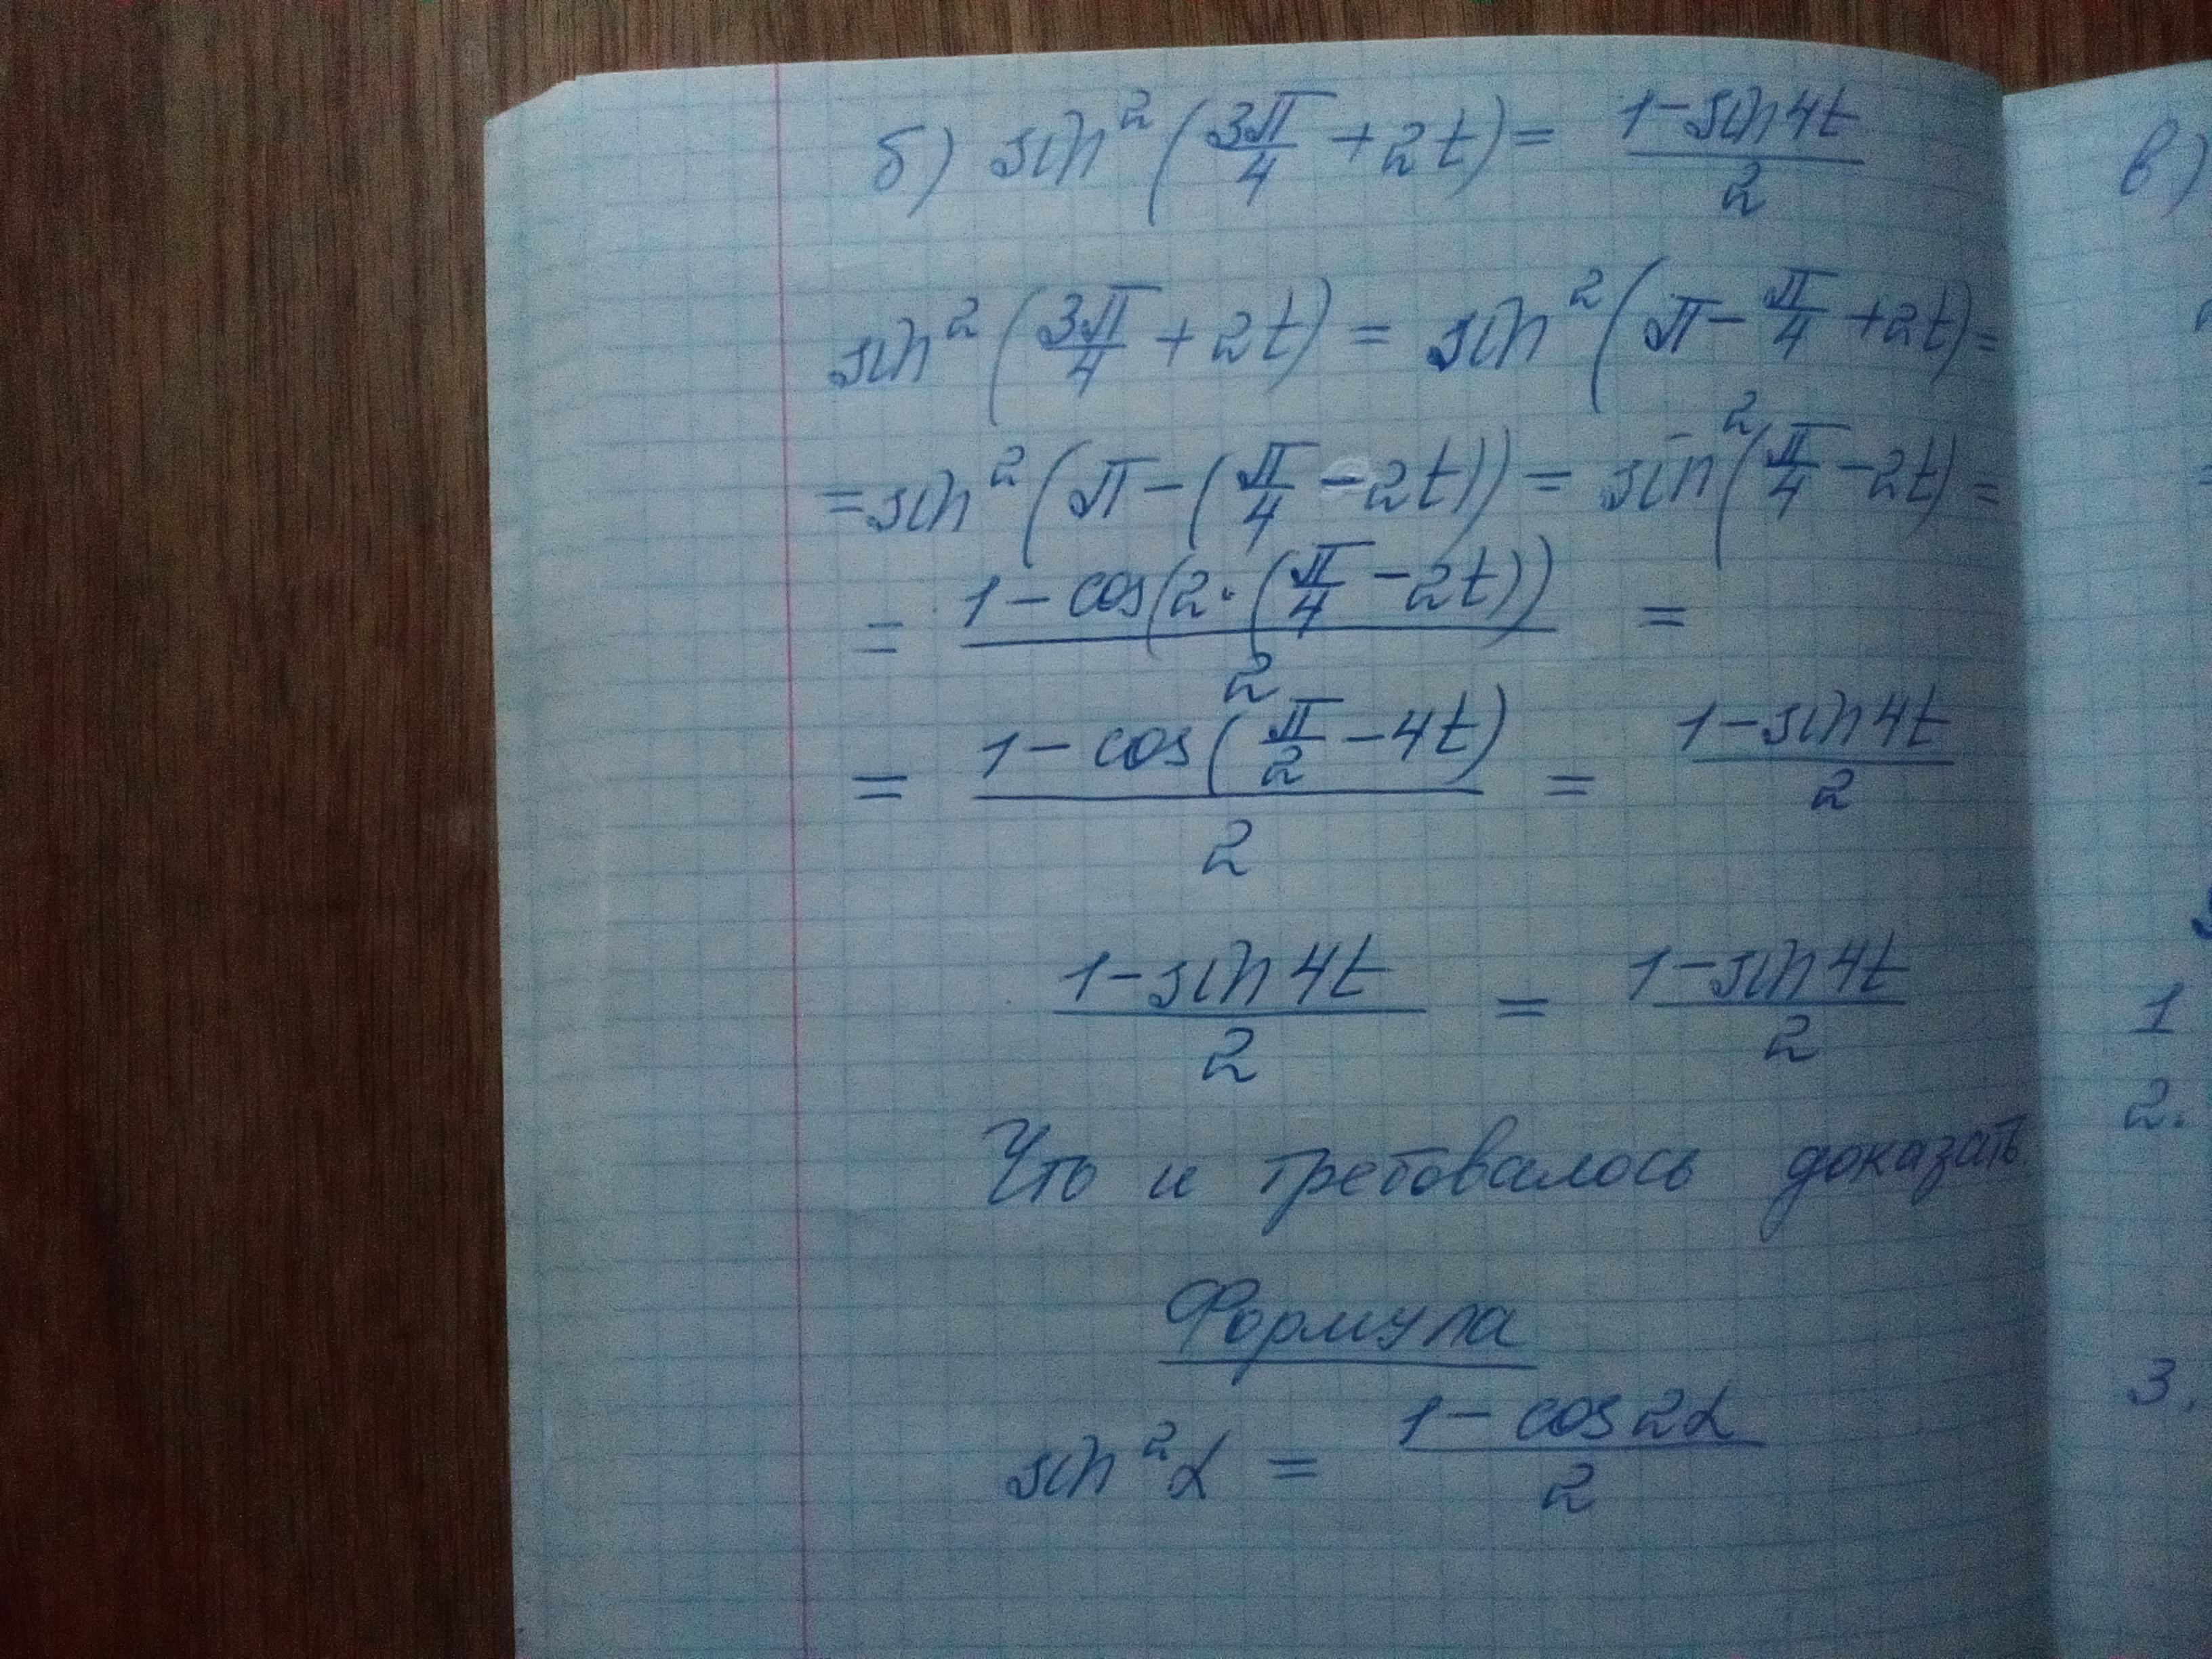 б) sin²(3π/4 + 2t) = (1 - sin4t)/2
sin²(3π/4 + 2t) = sin²(π - π/4 + 2t) =
= sin²(π - (π/4 - 2t)) = sin²(π/4 - 2t) =
= (1 - cos(2·(π/4 - 2t)))/2 =
= (1 - cos(π/2 - 4t))/2 = (1 - sin4t)/2
(1 - sin4t)/2 = (1 - sin4t)/2
Что и требовалось доказать.
Формула
sin²α = (1 - cos2α)/2
в)
1
2.
3.